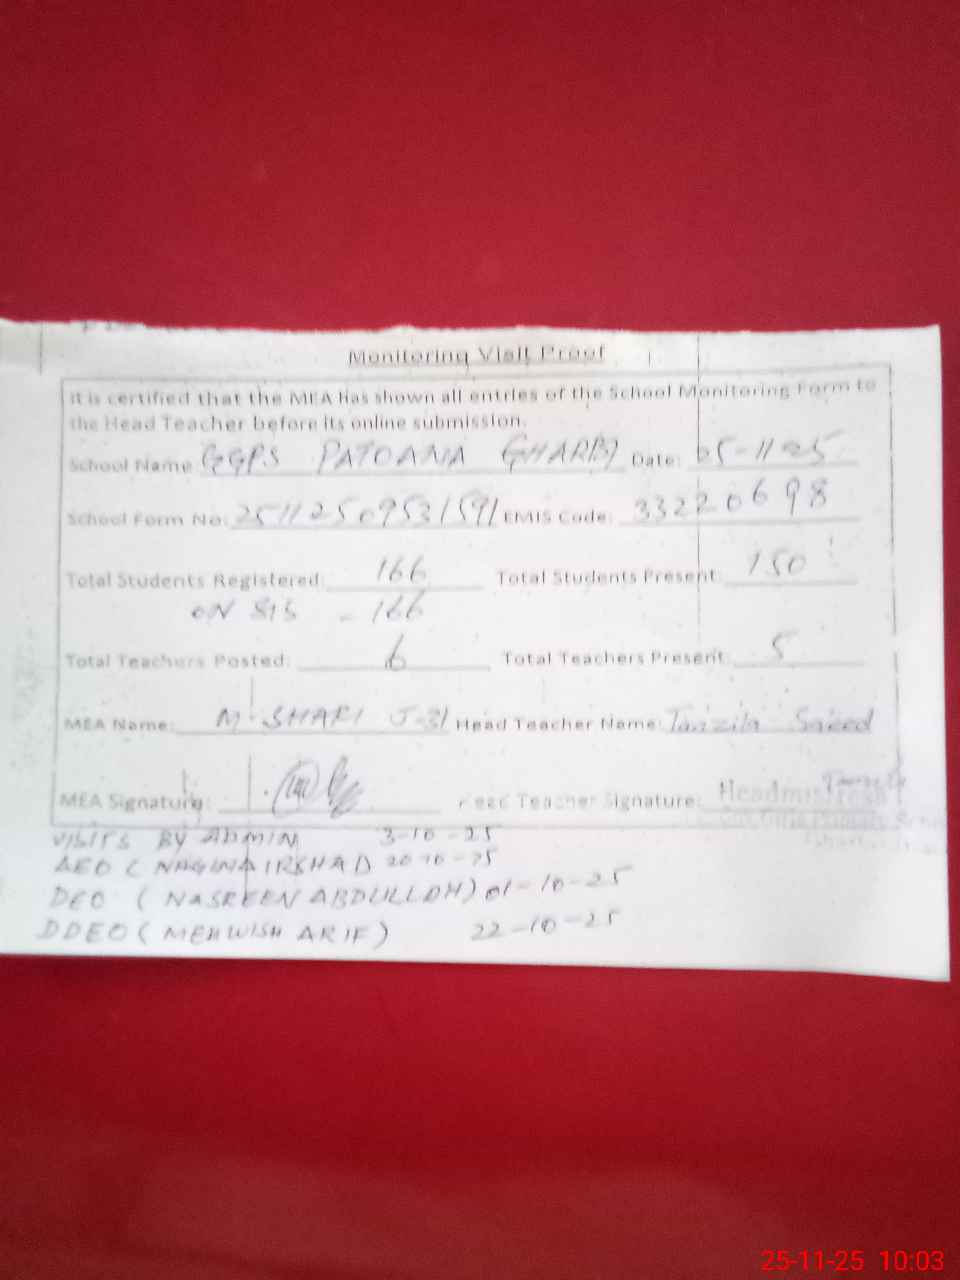 Monitoring Visit Proof
It is certified that the MEA has shown all entries of the School Monitoring Form to
the Head Teacher before its online submission.
School Name GGPS PATOANA GHARBI Date: 25-11-25
School Form No: 25112509531591 EMIS Code: 33220698
Total Students Registered: 166 Total Students Present: 150
ON SIS - 166
Total Teachers Posted: 6 Total Teachers Present: 5
MEA Name: M. SHAFI J-31 Head Teacher Name: Tanzila Saeed
MEA Signature: Head Teacher Signature: Headmistress
VISITS BY ADMIN 3-10-25
AEO ( NAGINA IRSHAD 20-10-25
DEO ( NASREEN ABDULLAH) 01-10-25
DDEO ( MEHWISH ARIF) 22-10-25
25-11-25 10:03